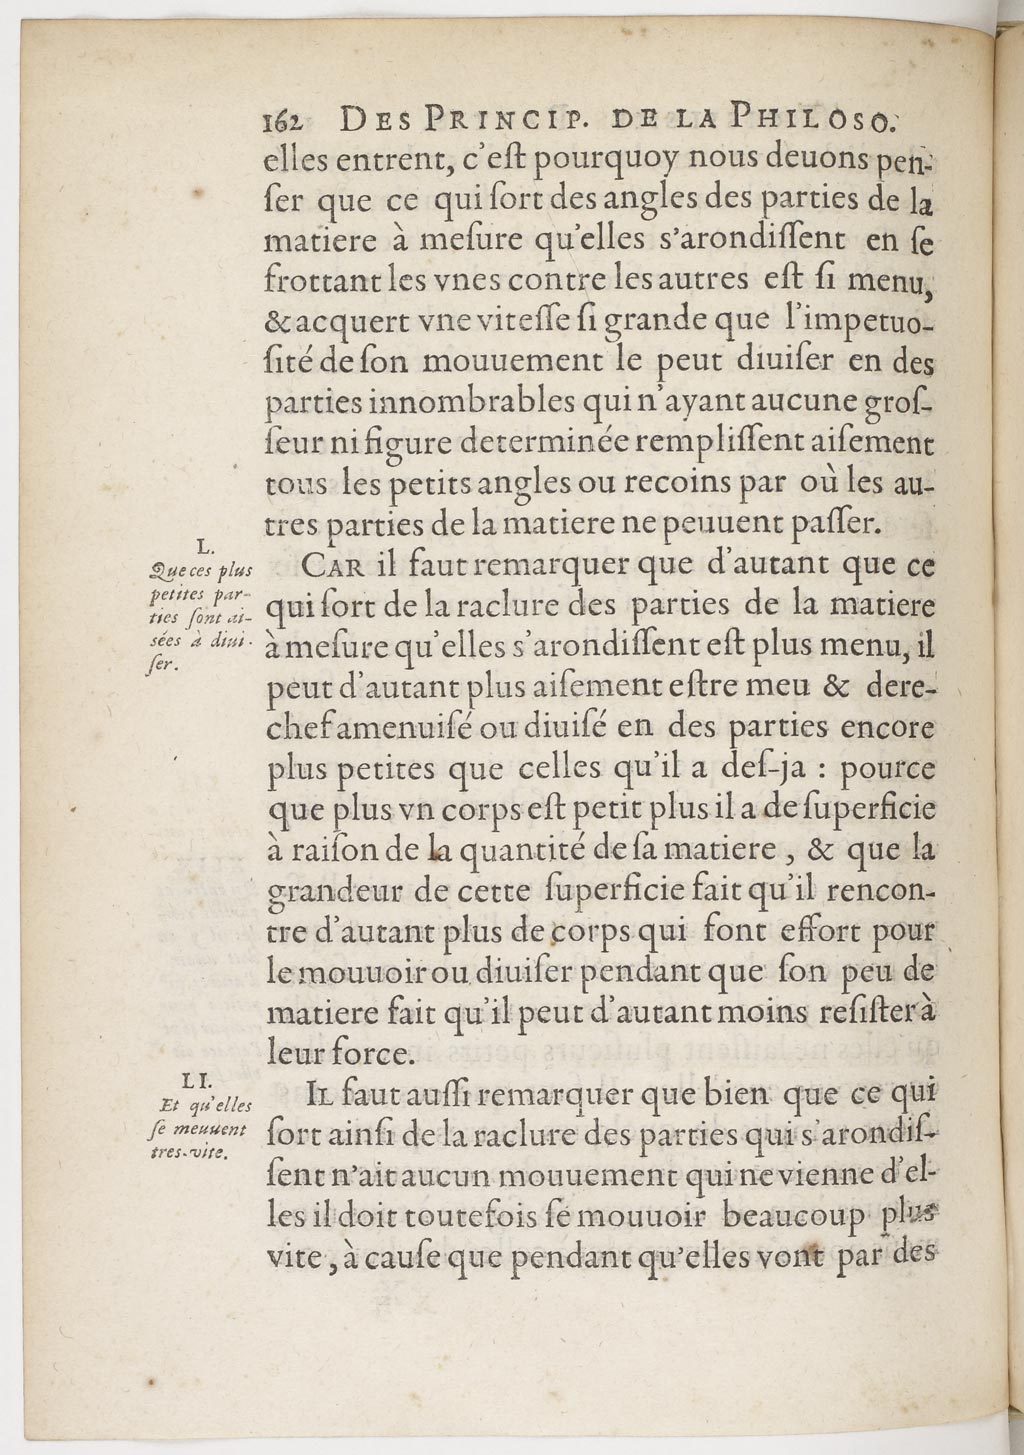 162 DES PRINCIP. DE LA PHILOSO.
elles entrent, c'eſt pourquoy nous deuons pen-
ſer que ce qui ſort des angles des parties de la
matiere à meſure qu'elles s'arondiſſent en ſe
frottant les vnes contre les autres eſt ſi menu,
& acquert vne viteſſe ſi grande que l'impetuo-
ſité de ſon mouuement le peut diuiſer en des
parties innombrables qui n'ayant aucune groſ-
ſeur ni figure determinée rempliſſent aiſement
tous les petits angles ou recoins par où les au-
tres parties de la matiere ne peuuent paſſer.
L.
Que ces plus
petites par-
ties ſont ai-
sées à diui-
ſer.
CAR il faut remarquer que d'autant que ce
qui ſort de la raclure des parties de la matiere
à meſure qu'elles s'arondiſſent eſt plus menu, il
peut d'autant plus aiſement eſtre meu & dere-
chef amenuiſé ou diuiſé en des parties encore
plus petites que celles qu'il a deſ-ja : pource
que plus vn corps eſt petit plus il a de ſuperficie
à raiſon de la quantité de ſa matiere, & que la
grandeur de cette ſuperficie fait qu'il rencon-
tre d'autant plus de corps qui font effort pour
le mouuoir ou diuiſer pendant que ſon peu de
matiere fait qu'il peut d'autant moins reſiſter à
leur force.
LI.
Et qu'elles
ſe meuuent
tres-vite.
IL faut auſſi remarquer que bien que ce qui
ſort ainſi de la raclure des parties qui s'arondiſ-
ſent n'ait aucun mouuement qui ne vienne d'el-
les il doit toutefois ſe mouuoir beaucoup plus
vite, à cauſe que pendant qu'elles vont par des